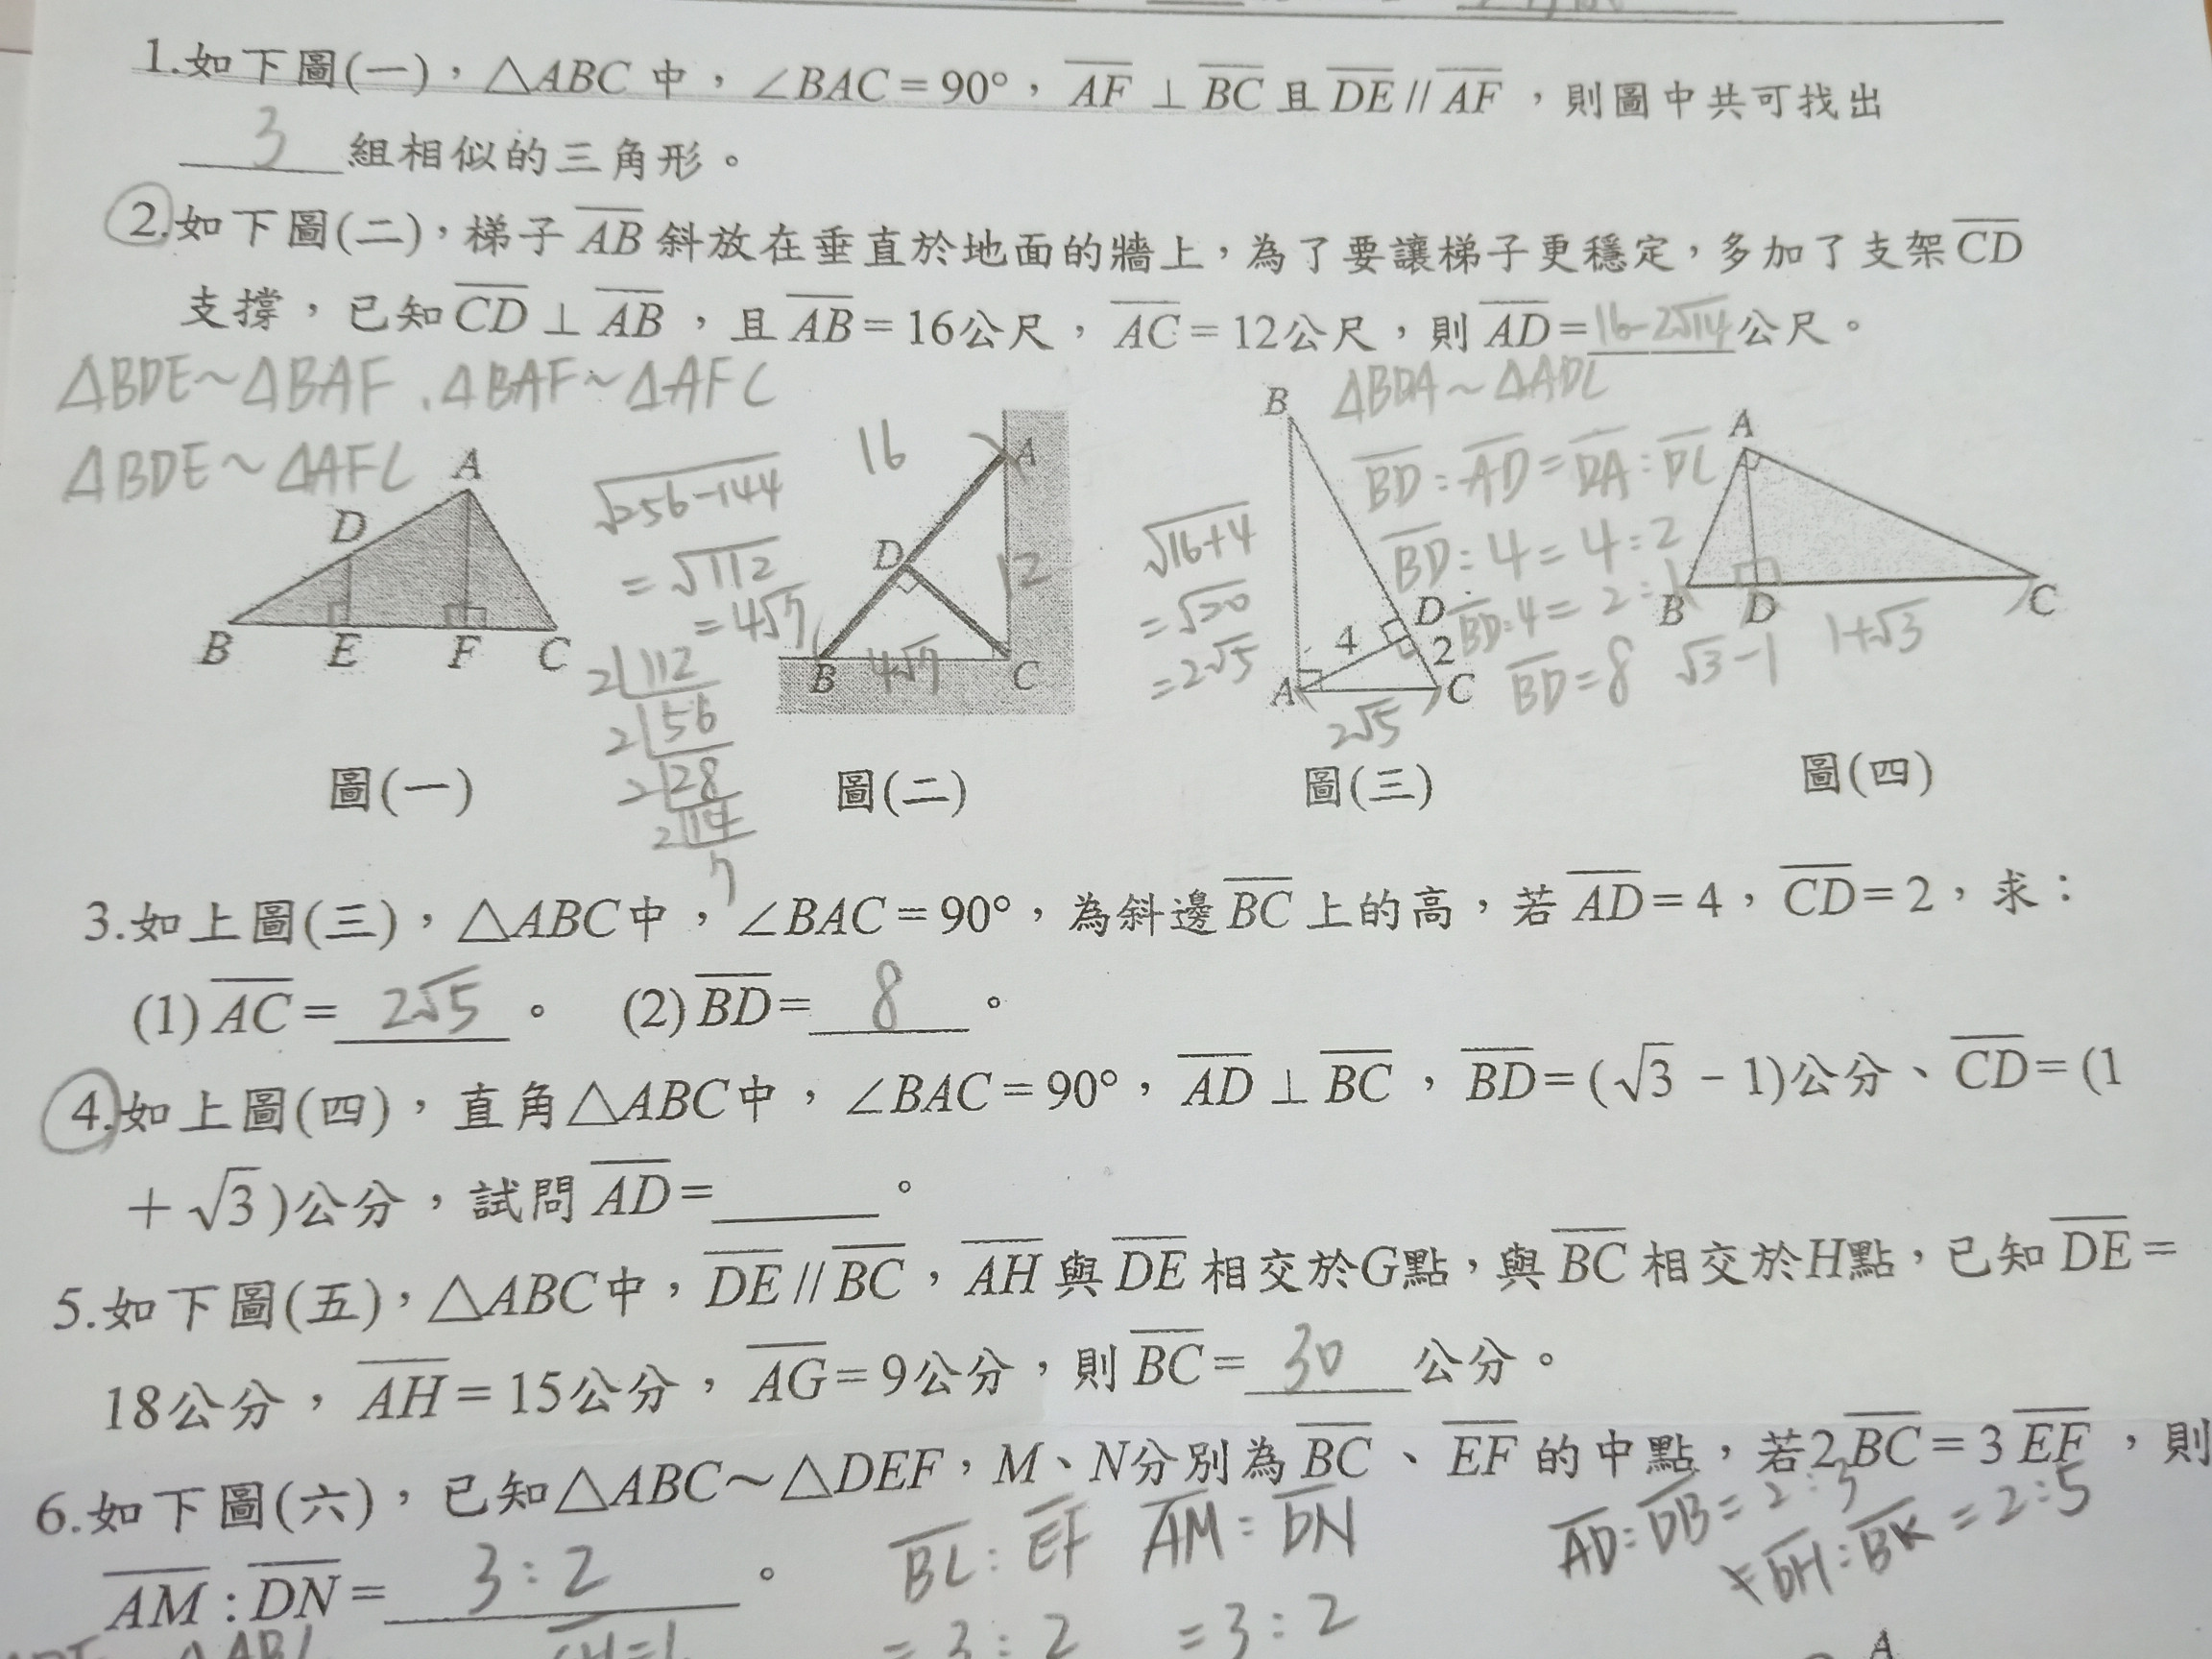 1.如下圖(一)，△ABC 中，∠BAC＝90°，AF ⊥ BC 且 DE // AF ，則圖中共可找出
3 組相似的三角形。
2.如下圖(二)，梯子 AB 斜放在垂直於地面的牆上，為了要讓梯子更穩定，多加了支架 CD
支撐，已知 CD ⊥ AB ，且 AB＝16公尺，AC＝12公尺，則 AD＝16-2√14 公尺。
△BDE~△BAF、△BAF~△AFC
△BDE~△AFC
A
D
B E F C
圖(一)
√256-144
=√112
=4√7
2 112
2 56
2 28
2 14
7
16
A
D
12
B 4√7 C
圖(二)
√16+4
=√20
=2√5
B
△BDA~△ADC
BD:AD=DA:DC
BD:4=4:2
BD:4=2:1
BD=8
D
4
2
A C
2√5
圖(三)
A
B D C
√3-1 1+√3
圖(四)
3.如上圖(三)，△ABC中，∠BAC＝90°，為斜邊 BC 上的高，若 AD＝4，CD＝2，求：
(1) AC＝ 2√5 。 (2) BD＝ 8 。
4.如上圖(四)，直角△ABC中，∠BAC＝90°，AD ⊥ BC ，BD＝(√3 - 1)公分、CD＝(1
＋√3)公分，試問 AD＝ 。
5.如下圖(五)，△ABC中，DE // BC，AH 與 DE 相交於G點，與 BC 相交於H點，已知 DE＝
18公分，AH＝15公分，AG＝9公分，則 BC＝ 30 公分。
6.如下圖(六)，已知△ABC～△DEF，M、N分別為 BC 、EF 的中點，若2BC＝3 EF ，則
AM : DN＝ 3:2 。
BC:EF AM:DN
=3:2 =3:2
=DH:BK=2:5
A